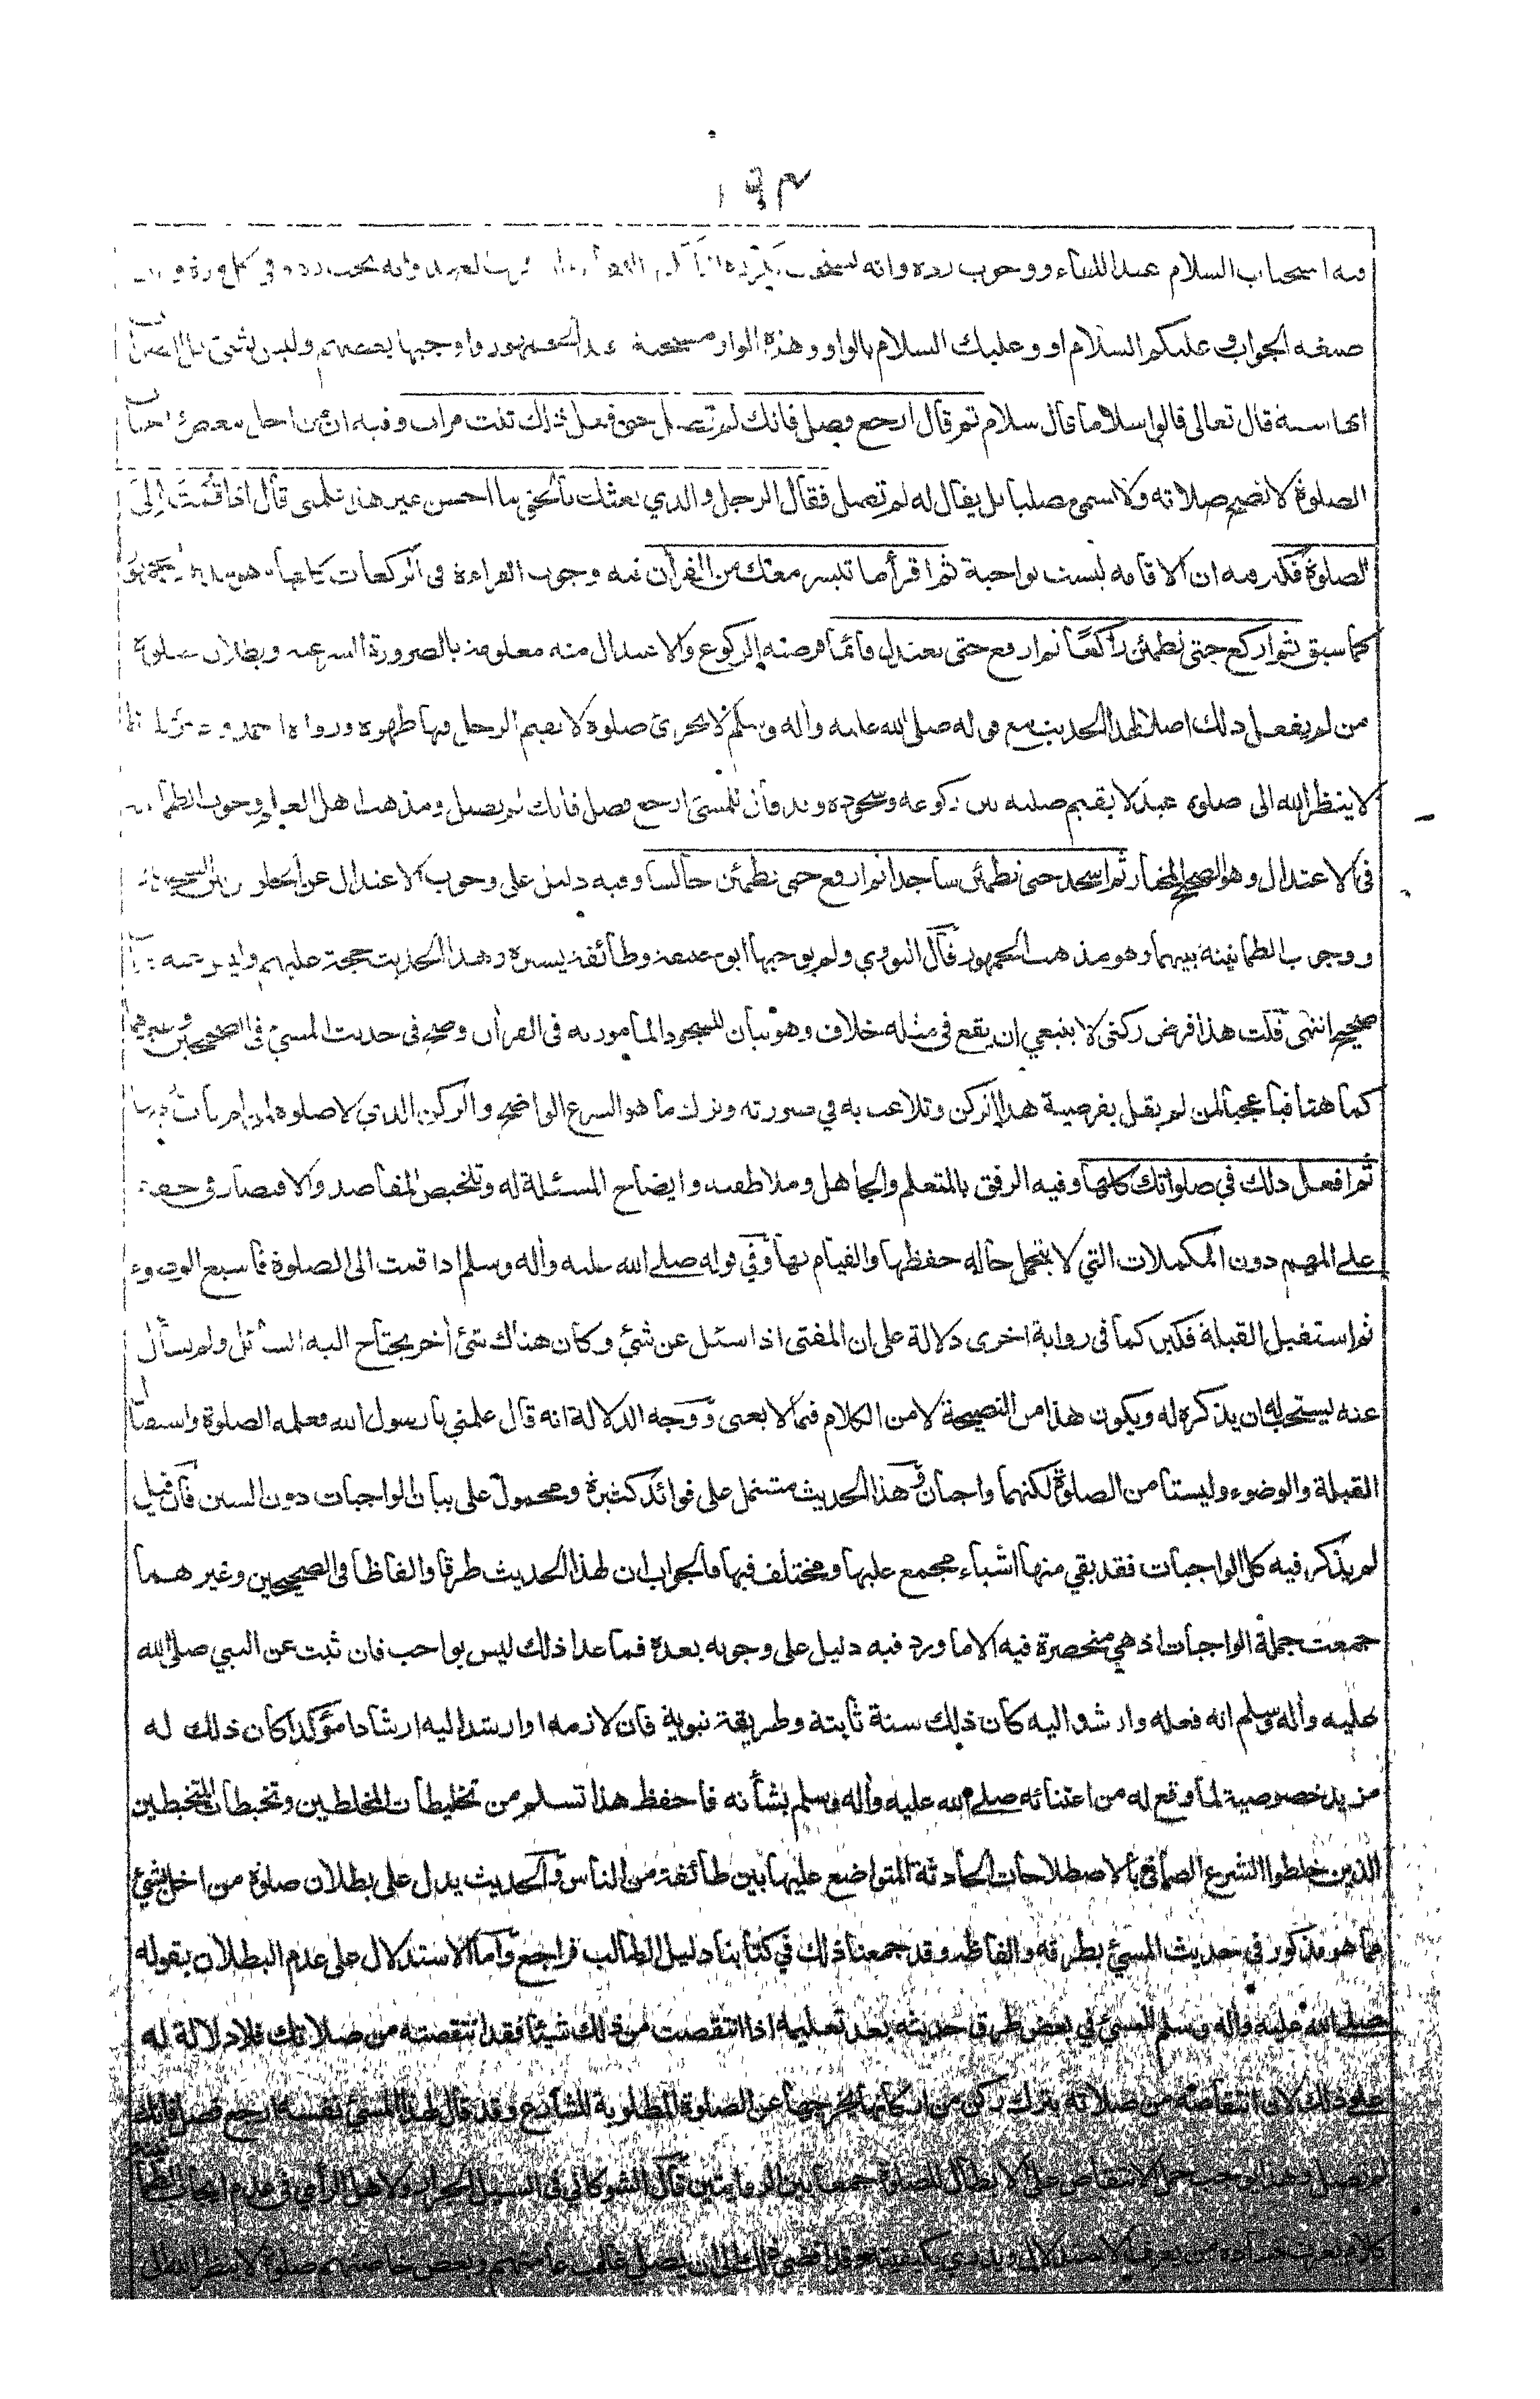 ١٩٣
استحباب السلام عند اللقاء ووجوب رده وانه
صيغة الجواب وعليكم السلام او وعليك السلام بالواو وهذه الواو مستحبة عند الجمهور واوجبها بعضهم وليس بشئ بل الصواب
انها سنة قال تعالى قالوا سلاما قال سلام ثم قال ارجع وصل فانك لم تصل حتى فعل ذلك ثلث مرات وفيه ان من اخل ببعض واجبات
الصلوة لا تصح صلاته ولا يسمى مصليا بل يقال له لم تصل فقال الرجل والذي بعثك بالحق ما احسن غير هذا علمني قال اذا قمت الى
الصلوة فكبر فيه ان الاقامة ليست بواجبة ثم اقرأ ما تيسر معك من القرأن فيه وجوب القراءة في الركعات كلها وهو مذهب الجمهور
كما سبق ثم اركع حتى تطمئن راكعا ثم ارفع حتى تعتدل قائما فرضية الركوع والاعتدال منه معلومة بالضرورة الشرعية وبطلان صلوة
من لم يفعل ذلك اصلا لهذا الحديث مع قوله صلى الله عليه وأله وسلم لا تجزئ صلوة لا يقيم الرجل فيها ظهره ورواه احمد
لا ينظر الله الى صلوة عبد لا يقيم صلبه بين ركوعه وسجوده وقد قال للمسئ ارجع فصل فانك لم تصل ومذهب اهل العلم وجوب الطمأنينة
في الاعتدال وهو الصحيح المختار ثم اسجد حتى تطمئن ساجدا ثم ارفع حتى تطمئن جالسا وفيه دليل على وجوب الاعتدال عن الجلوس بين السجدتين
ووجوب الطمانينة بينهما وهو مذهب الجمهور قال النووي ولم يوجبها ابو حنيفة وطائفة يسيرة وهذا الحديث حجة عليهم وليس عنه جواب
صحيح انتهى قلت هذا فرض ركني لا ينبغي ان يقع في مثله خلاف وهو بيان للسجود المأمور به في القرأن وصح في حديث المسئ في الصحيحين وغيرهما
كما هنا فيا عجبا لمن لم يقل بفرضية هذا الركن وتلاعب به في صورته وترك ما هو الشرع الواضح والركن الذي لا صلوة لمن لم يأت بها
ثم افعل ذلك في صلواتك كلها وفيه الرفق بالمتعلم والجاهل وملاطفته وايضاح المسئلة له وتلخيص المقاصد والاقتصار في حقه
على المهم دون المكملات التي لا يتحمل حاله حفظها والقيام بها وفي قوله صلى الله عليه وأله وسلم اذا قمت الى الصلوة فأسبغ الوضوء
ثم استقبل القبلة فكبر كما في رواية اخرى دلالة على ان المفتى اذا سئل عن شئ وكان هناك شئ أخر يحتاج اليه السائل ولم يسأل
عنه يستحب له ان يذكره له ويكون هذا من النصيحة لا من الكلام فيما لا يعنى ووجه الدلالة انه قال علمني يا رسول الله فعلمه الصلوة واستقبال
القبلة والوضوء وليستا من الصلوة لكنهما واجبان وهذا الحديث مشتمل على فوائد كثيرة ومحمول على بيان الواجبات دون السنن فان قيل
لم يذكر فيه كل الواجبات فقد بقي منها اشياء مجمع عليها ومختلف فيها فالجواب ان لهذا الحديث طرقا والفاظا في الصحيحين وغيرهما
جمعت جملة الواجبات اذ هي منحصرة فيه الا ما ورد فيه دليل على وجوبه بعده فما عدا ذلك ليس بواجب فان ثبت عن النبي صلى الله
عليه وأله وسلم انه فعله وارشد اليه كان ذلك سنة ثابتة وطريقة نبوية فان لازمه او ارشد اليه ارشادا مؤكدا كان ذلك له
مزيد خصوصية لما وقع له من اعتنائه صلى الله عليه وأله وسلم بشأنه فاحفظ هذا تسلم من تخليطات المخلطين وتخبطات المتخبطين
الذين خلطوا الشرع الصافي بالاصطلاحات الحادثة المتواضع عليها بين طائفة من الناس والحديث يدل على بطلان صلوة من اخل بشئ
مما هو مذكور في حديث المسئ بطرقه والفاظه وقد جمعنا ذلك في كتابنا دليل الطالب فراجع واما الاستدلال على عدم البطلان بقوله
صلى الله عليه وأله وسلم للمسئ في بعض طرق حديثه بعد تعليمه اذا انتقصت من ذلك شيئا فقد انتقصته من صلاتك فلا دلالة له
على ذلك لان انتقاصه من صلاته بترك ركن من اركانها يخرجها عن الصلوة المطلوبة للشارع وقد قال لهذا المسئ نفسه ارجع فصل فانك
لم تصل وهذا يوجب حمل الانتقاص على الابطال للصلوة جمعا بين الروايتين قال الشوكاني في السيل الجرار ولاهل الرأي في عدم ايجاب الطمأنينة
كلام يعرف فساده من يعرف الاستدلال ويدري بكيفيته وقد افضى ذلك الى ان يصلى غالب عامتهم وبعض خاصتهم صلوة لا ينظر الله الى